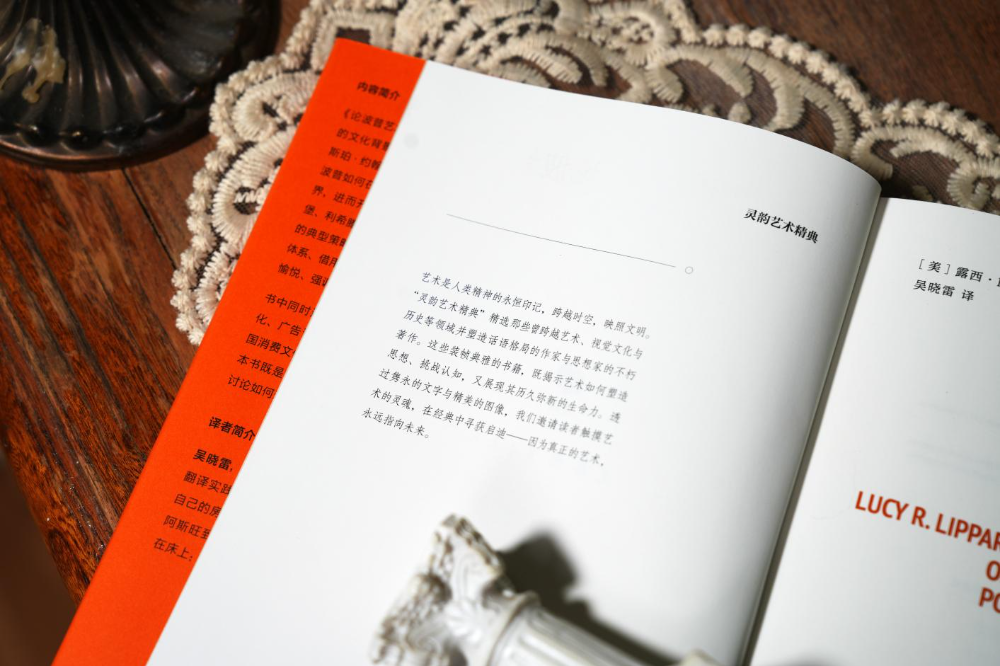 内容简介
《论波普艺
的文化背景
斯珀·约翰
波普如何在
界、进而
堡、利希
的典型策略
体系、借用
愉悦、强调
书中同时
化、广告
国消费文
本书既是
讨论如何
译者简介
吴晓雷,
翻译实践
自己的房
阿斯旺到
在床上:
灵韵艺术精典
艺术是人类精神的永恒印记,跨越时空,映照文明。
“灵韵艺术精典”精选那些曾跨越艺术、视觉文化与
历史等领域并塑造话语格局的作家与思想家的不朽
著作。这些装帧典雅的书籍,既揭示艺术如何塑造
思想、挑战认知,又展现其历久弥新的生命力。透
过隽永的文字与精美的图像,我们邀请读者触摸艺
术的灵魂,在经典中寻获启迪——因为真正的艺术,
永远指向未来。
[美]露西·
吴晓雷 译
LUCY R. LIPPAR
O
PO